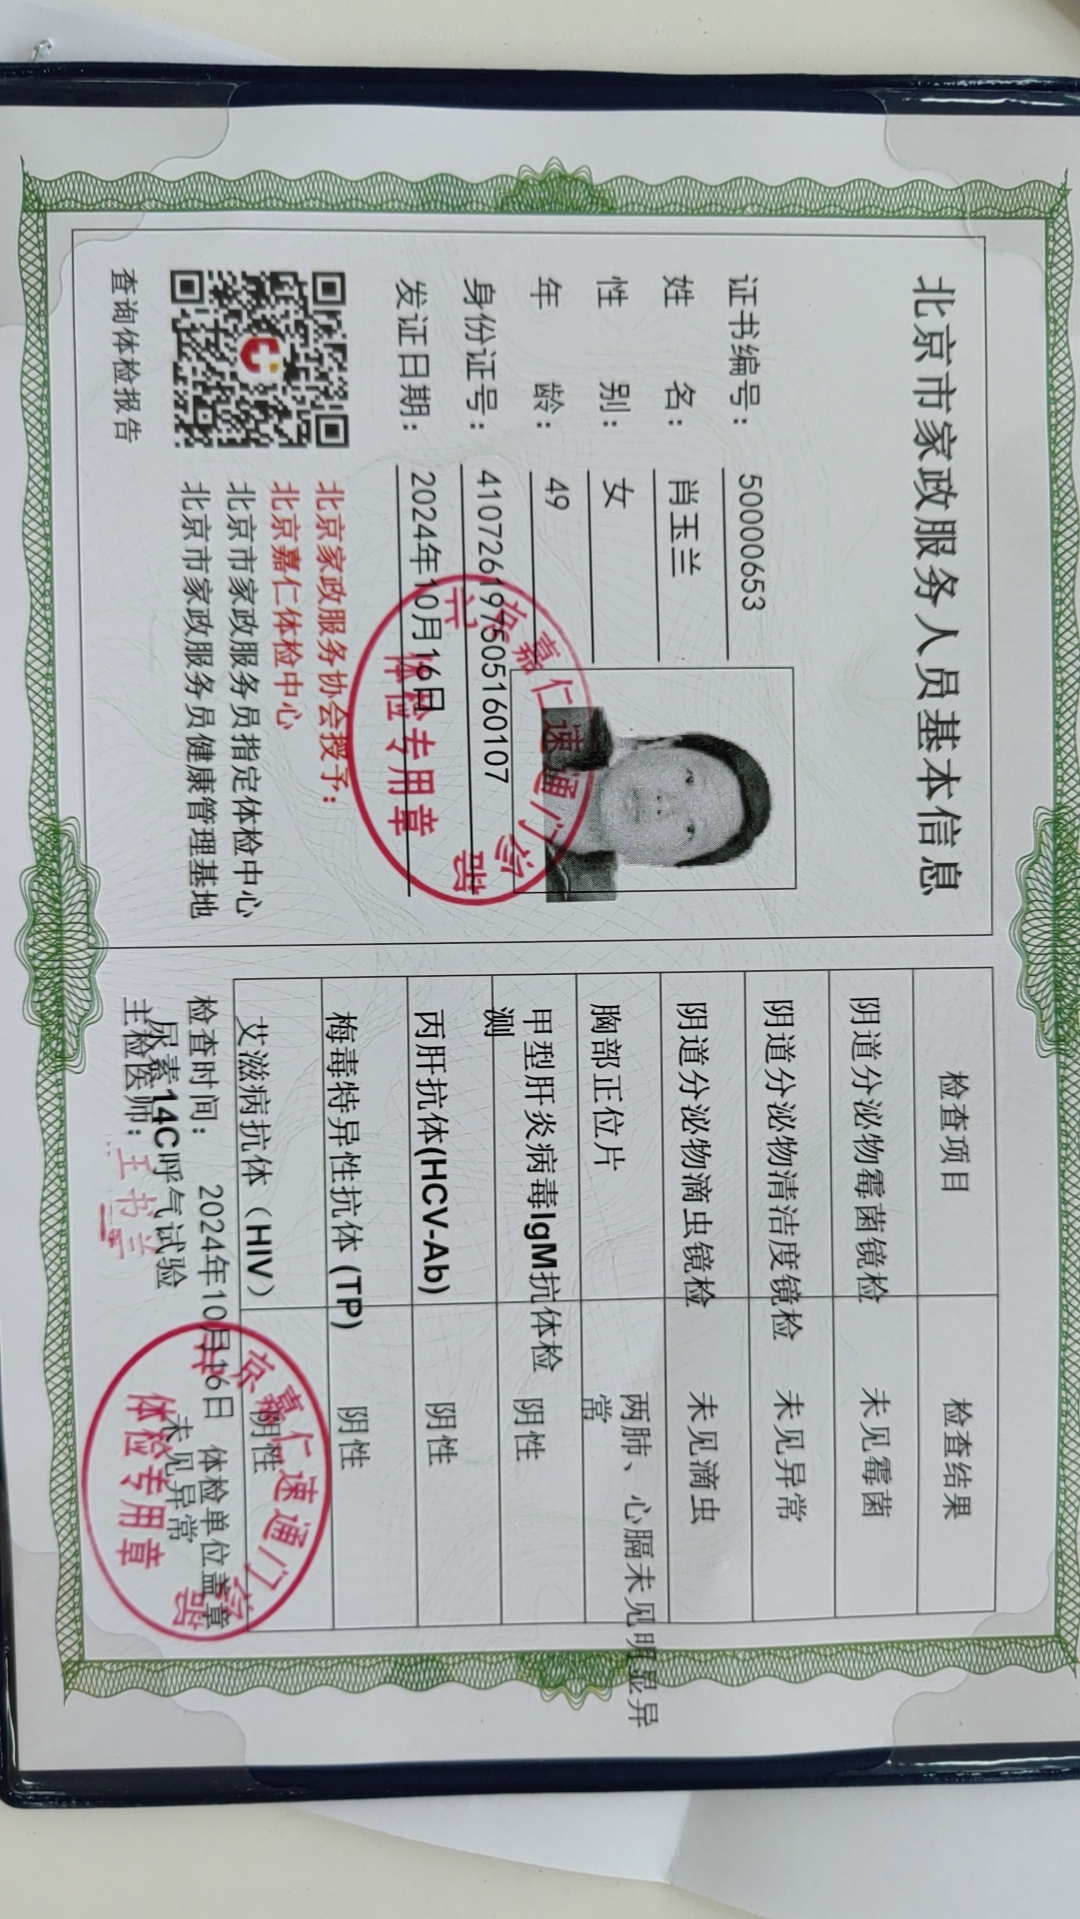 北京市家政服务人员基本信息
证书编号： 50000653
姓 名： 肖玉兰
性 别： 女
年 龄： 49
身份证号： 410726197505160107
发证日期： 2024年10月16日
北京家政服务协会授予：
北京嘉仁体检中心
北京市家政服务员指定体检中心
北京市家政服务员健康管理基地
查询体检报告
京嘉仁速通门诊部
体检专用章
检查项目 检查结果
阴道分泌物霉菌镜检 未见霉菌
阴道分泌物清洁度镜检 未见异常
阴道分泌物滴虫镜检 未见滴虫
胸部正位片 两肺、心膈未见明显异
常
甲型肝炎病毒IgM抗体检 阴性
测
丙肝抗体(HCV-Ab) 阴性
梅毒特异性抗体 (TP) 阴性
艾滋病抗体（HIV） 阴性
检查时间： 2024年10月16日 体检单位盖章
尿素14C呼气试验 未见异常
主检医师：
京嘉仁速通门诊部
体检专用章